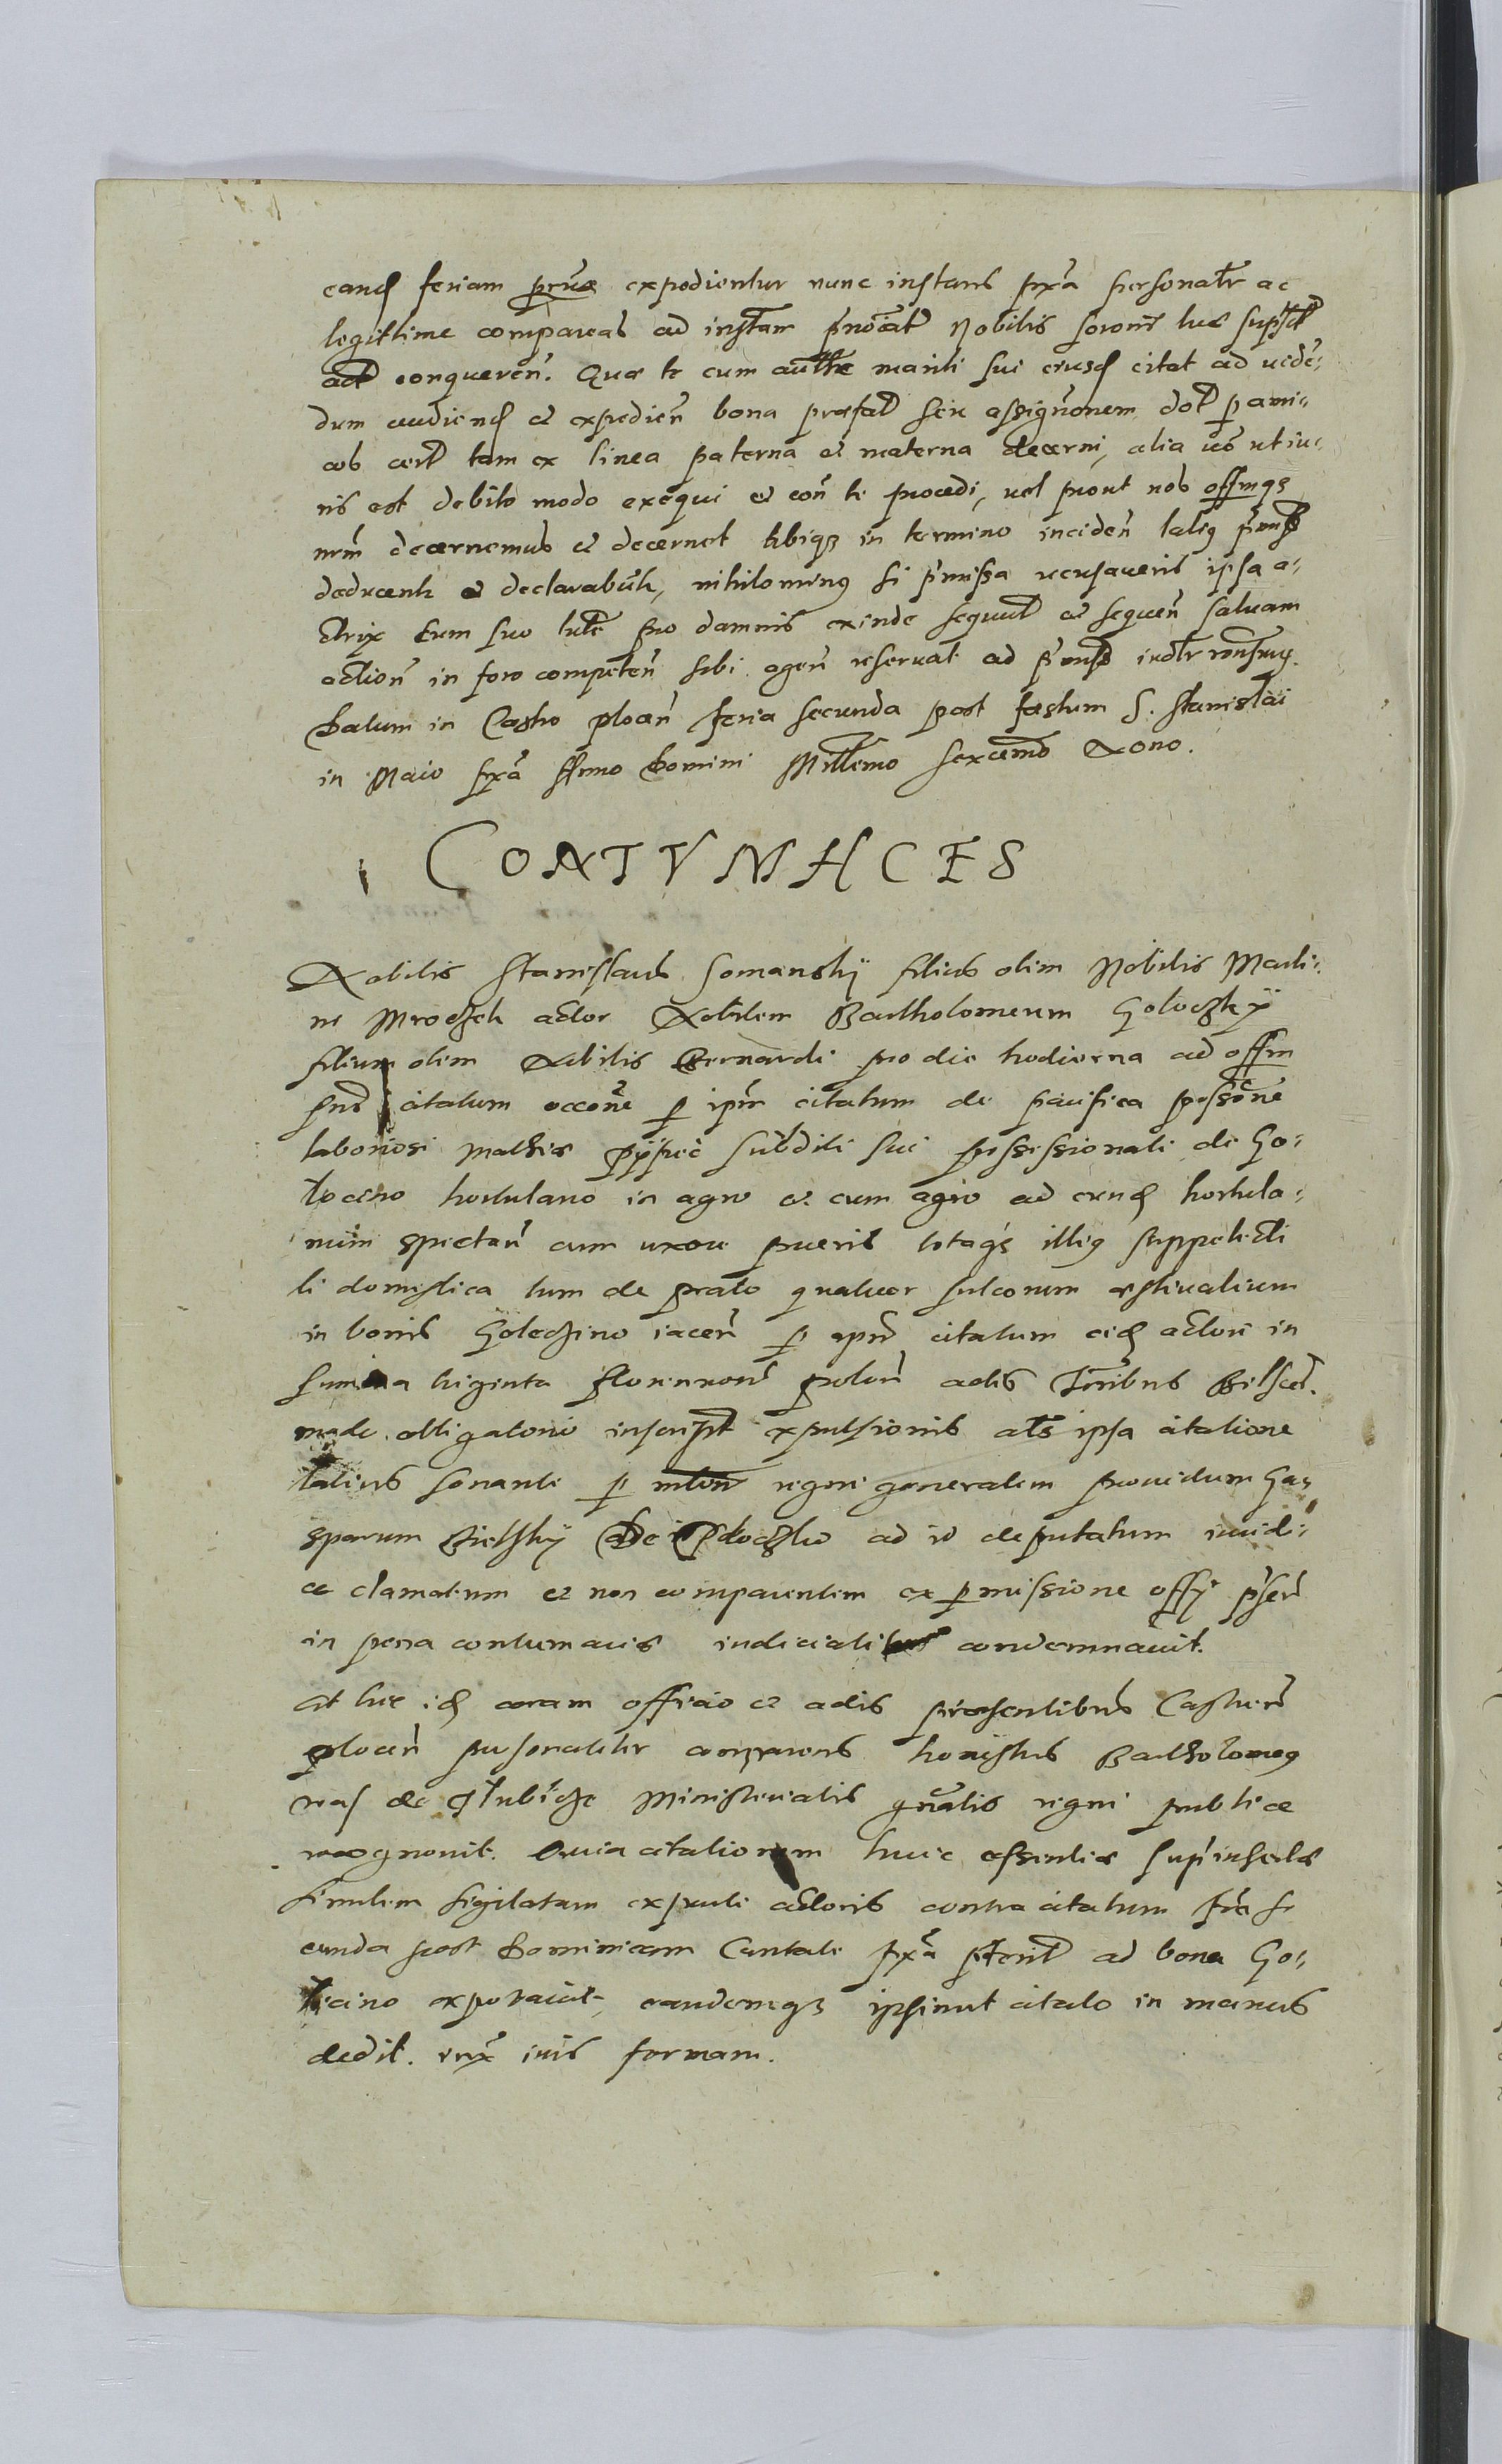 eand feriam expedientur nunc instans prxa personalr ac
legittime compareas ad instam Nobilis sororis tuæ
act conqueren. Quæ te cum autte mariti sui eiusd citat ad viden-
dum audiend et expedien bona præfat seu assignonem dot p ami-
cos cert tam ex linea paterna et materna decerni, alia vo ut iu-
ris est debito modo exequi et con te procedi, vel prout nos offmq
nrm decernemus et decernet tibiq in termino inciden latiq
deducent et declarabunt, nihilominus si pmissa recusaveris ipsa a-
ctrix cum suo tute pro damnis exinde sequut et sequen salvam
action in foro competen sibi agen reservat ad
Datum in Castro plocen feria secunda post festum S. Stanislai
in Maio prxa Anno Domini Millemo sexcemo Nono.
CONTVMACES
Nobilis Stanislaus Somanskÿ filius olim Nobilis Marti-
ni Mroczek actor Nobilem Bartholomeum Goloczkÿ
filium olim Nobilis Bernardi pro die hodierna ad offm
pns citatum occone p ipm citatum de pacifica possone
laboriosi Mathiæ subditi sui possessionati de Go-
loczino hortulano in agro et cum agro ad eund hortula-
num spectan cum uxore pueris totaq illiq suppelecti
li domestica tum de prato quatuor sulcorum æstivalium
in bonis Goleczino iacen p ipm citatum eid actori in
summa triginta florenrom polon actis Trribus Bilscen.
modo obligatorio inscript expulsionis als ipsa citatione
latius sonante p mlem regni generalem providum Ga-
sparum Bielskÿ De ad id deputatum iuridi-
ce clamatum et non comparentem ex p missione offy psen
in pena contumaciæ iudicialiter condemnavit.
Et hic id coram officio et actis præsentibus Castren
plocen personaliter comparens honestus Bartholomeq
de Ministerialis gnalis regni publice
recognovit. Quia citationem huic essentiæ supinsertæ
similem sigilatam ex parte actoris contra citatum fria se
cunda post Dominicam Cantate prxa pterit ad bona Go-
leczino exportavit, eandemq ipsimet citato in manus
dedit. iuxa iuris formam.